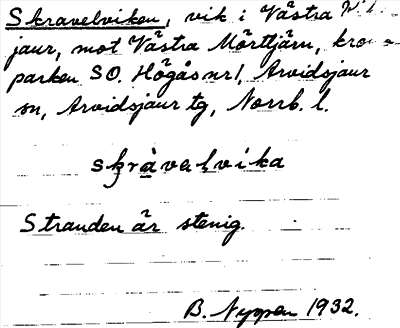 Skravelviken, vik i Västra
jaur, mot Västra Mörttjärn, kro-
parken SO. Högås nr 1, Arvidsjaur
sn, Arvidsjaur tg, Norrb. l.
skràvelvika
Stranden är stenig.
B. Nyman 1932.